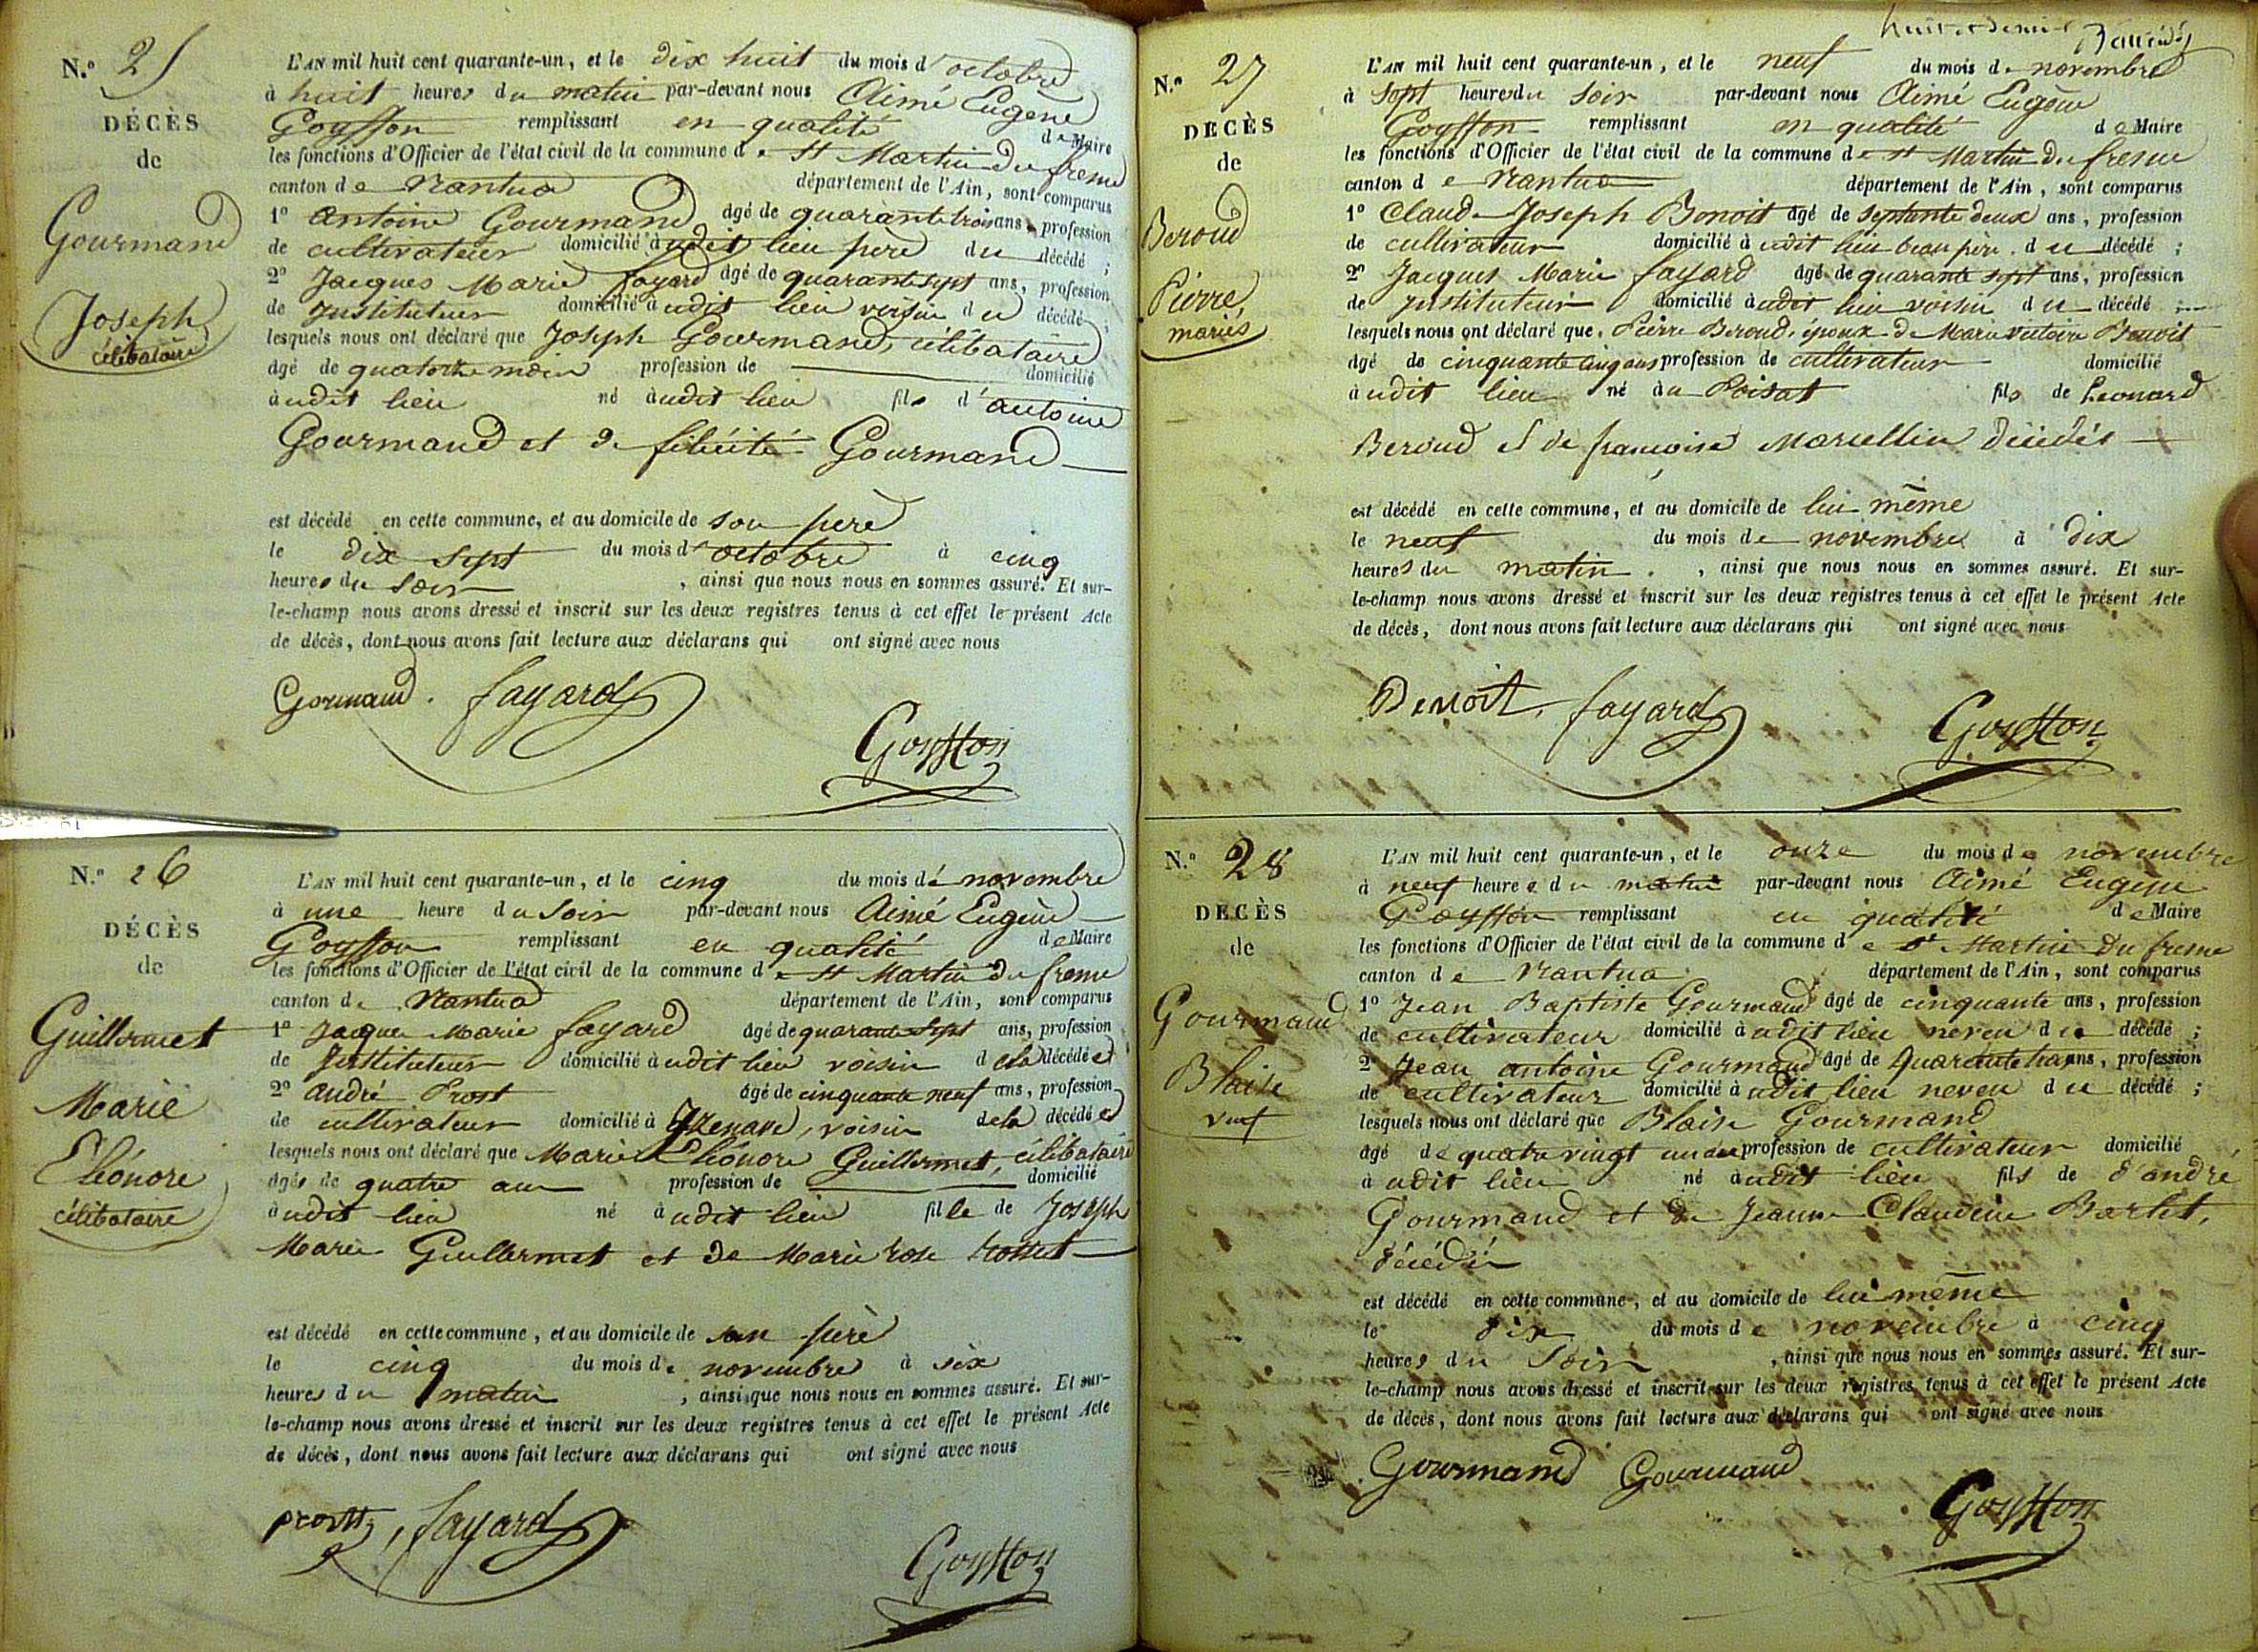 N.° 25
DÉCÈS
de
Gourmand
Joseph
célibataire
L'AN mil huit cent quarante-un, et le dix huit du mois d'octobre
à huit heures du matin par-devant nous Aimé Eugène
Goyffon remplissant en qualité de Maire
les fonctions d'Officier de l'état civil de la commune de St Martin du fresne
canton de Nantua département de l'Ain, sont comparus
1° Antoine Gourmand âgé de quarante trois ans, profession
de cultivateur domicilié audit lieu père du décédé ;
2° Jacques Marie fayard âgé de quarante sept ans, profession
de Instituteur domicilié audit lieu voisin du décédé ;
lesquels nous ont déclaré que Joseph Gourmand, célibataire
âgé de quatorze mois profession de domicilié
audit lieu né audit lieu fils d'antoine
Gourmand et de félicité Gourmand
est décédé en cette commune, et au domicile de son père
le dix sept du mois d'octobre à cinq
heures du soir, ainsi que nous nous en sommes assuré. Et sur-
le-champ nous avons dressé et inscrit sur les deux registres tenus à cet effet le présent Acte
de décès, dont nous avons fait lecture aux déclarans qui ont signé avec nous
Gormand. fayard
Goyffon
N.° 26
DÉCÈS
de
Guillermet
Marie
Eléonore
célibataire
L'AN mil huit cent quarante-un, et le cinq du mois de novembre
à une heure du soir par-devant nous Aimé Eugène
Goyffon remplissant en qualité de Maire
les fonctions d'Officier de l'état civil de la commune de St Martin du fresne
canton de Nantua département de l'Ain, sont comparus
1° Jacque Marie fayard âgé de quarante sept ans, profession
de Instituteur domicilié audit lieu voisin de la décédée
2° andré Prost âgé de cinquante neuf ans, profession
de cultivateur domicilié à Izenave, voisin de la décédée
lesquels nous ont déclaré que Marie Eléonore Guillermet, célibataire
âgée de quatre ans profession de domicilié
audit lieu né audit lieu fille de Joseph
Marie Guillermet et de Marie rose
est décédé en cette commune, et au domicile de son père
le cinq du mois de novembre à six
heures du matin, ainsi que nous nous en sommes assuré. Et sur-
le-champ nous avons dressé et inscrit sur les deux registres tenus à cet effet le présent Acte
de décès, dont nous avons fait lecture aux déclarans qui ont signé avec nous
prost, fayard
Goyffon
huit
N.° 27
DÉCÈS
de
Beroud
Pierre
mariés
L'AN mil huit cent quarante-un, et le neuf du mois de novembre
à Sept heures du soir par-devant nous Aimé Eugène
Goyffon remplissant en qualité de Maire
les fonctions d'Officier de l'état civil de la commune de st Martin du fresne
canton de Nantua département de l'Ain, sont comparus
1° Claude Joseph Benoit âgé de septante deux ans, profession
de cultivateur domicilié audit lieu beau père du décédé ;
2° Jacques Marie fayard âgé de quarante sept ans, profession
de Instituteur domicilié audit lieu voisin du décédé
lesquels nous ont déclaré que Pierre Beroud, époux de Marie victoire Benoit
âgé de cinquante cinq ans profession de cultivateur domicilié
audit lieu né au Poisat fils de Léonard
Beroud et de françoise Marcellin décédés
est décédé en cette commune, et au domicile de lui même
le neuf du mois de novembre à dix
heures du matin, ainsi que nous nous en sommes assuré. Et sur-
le-champ nous avons dressé et inscrit sur les deux registres tenus à cet effet le présent Acte
de décès, dont nous avons fait lecture aux déclarans qui ont signé avec nous
Benoit, fayard
Goyffon
N.° 28
DÉCÈS
de
Gourmand
Blaise
veuf
L'AN mil huit cent quarante-un, et le onze du mois de novembre
à neuf heures du matin par-devant nous Aimé Eugène
Goyffon remplissant en qualité de Maire
les fonctions d'Officier de l'état civil de la commune de st Martin du fresne
canton de Nantua département de l'Ain, sont comparus
1° Jean Baptiste Gourmand âgé de cinquante ans, profession
de cultivateur domicilié audit lieu neveu du décédé ;
2 Jean antoine Gourmand âgé de quarante trois ans, profession
de cultivateur domicilié audit lieu neveu du décédé ;
lesquels nous ont déclaré que Blaise Gourmand
âgé de quatre vingt un ans profession de cultivateur domicilié
à udit lieu né audit lieu fils de d'andré
Gourmand et de Jeanne Claudine Barlet,
décédés
est décédé en cette commune, et au domicile de lui même
le dix du mois de novembre à cinq
heures du soir, ainsi que nous nous en sommes assuré. Et sur-
le-champ nous avons dressé et inscrit sur les deux registres tenus à cet effet le présent Acte
de décès, dont nous avons fait lecture aux déclarans qui ont signé avec nous
Gourmand Gourmand
Goyffon